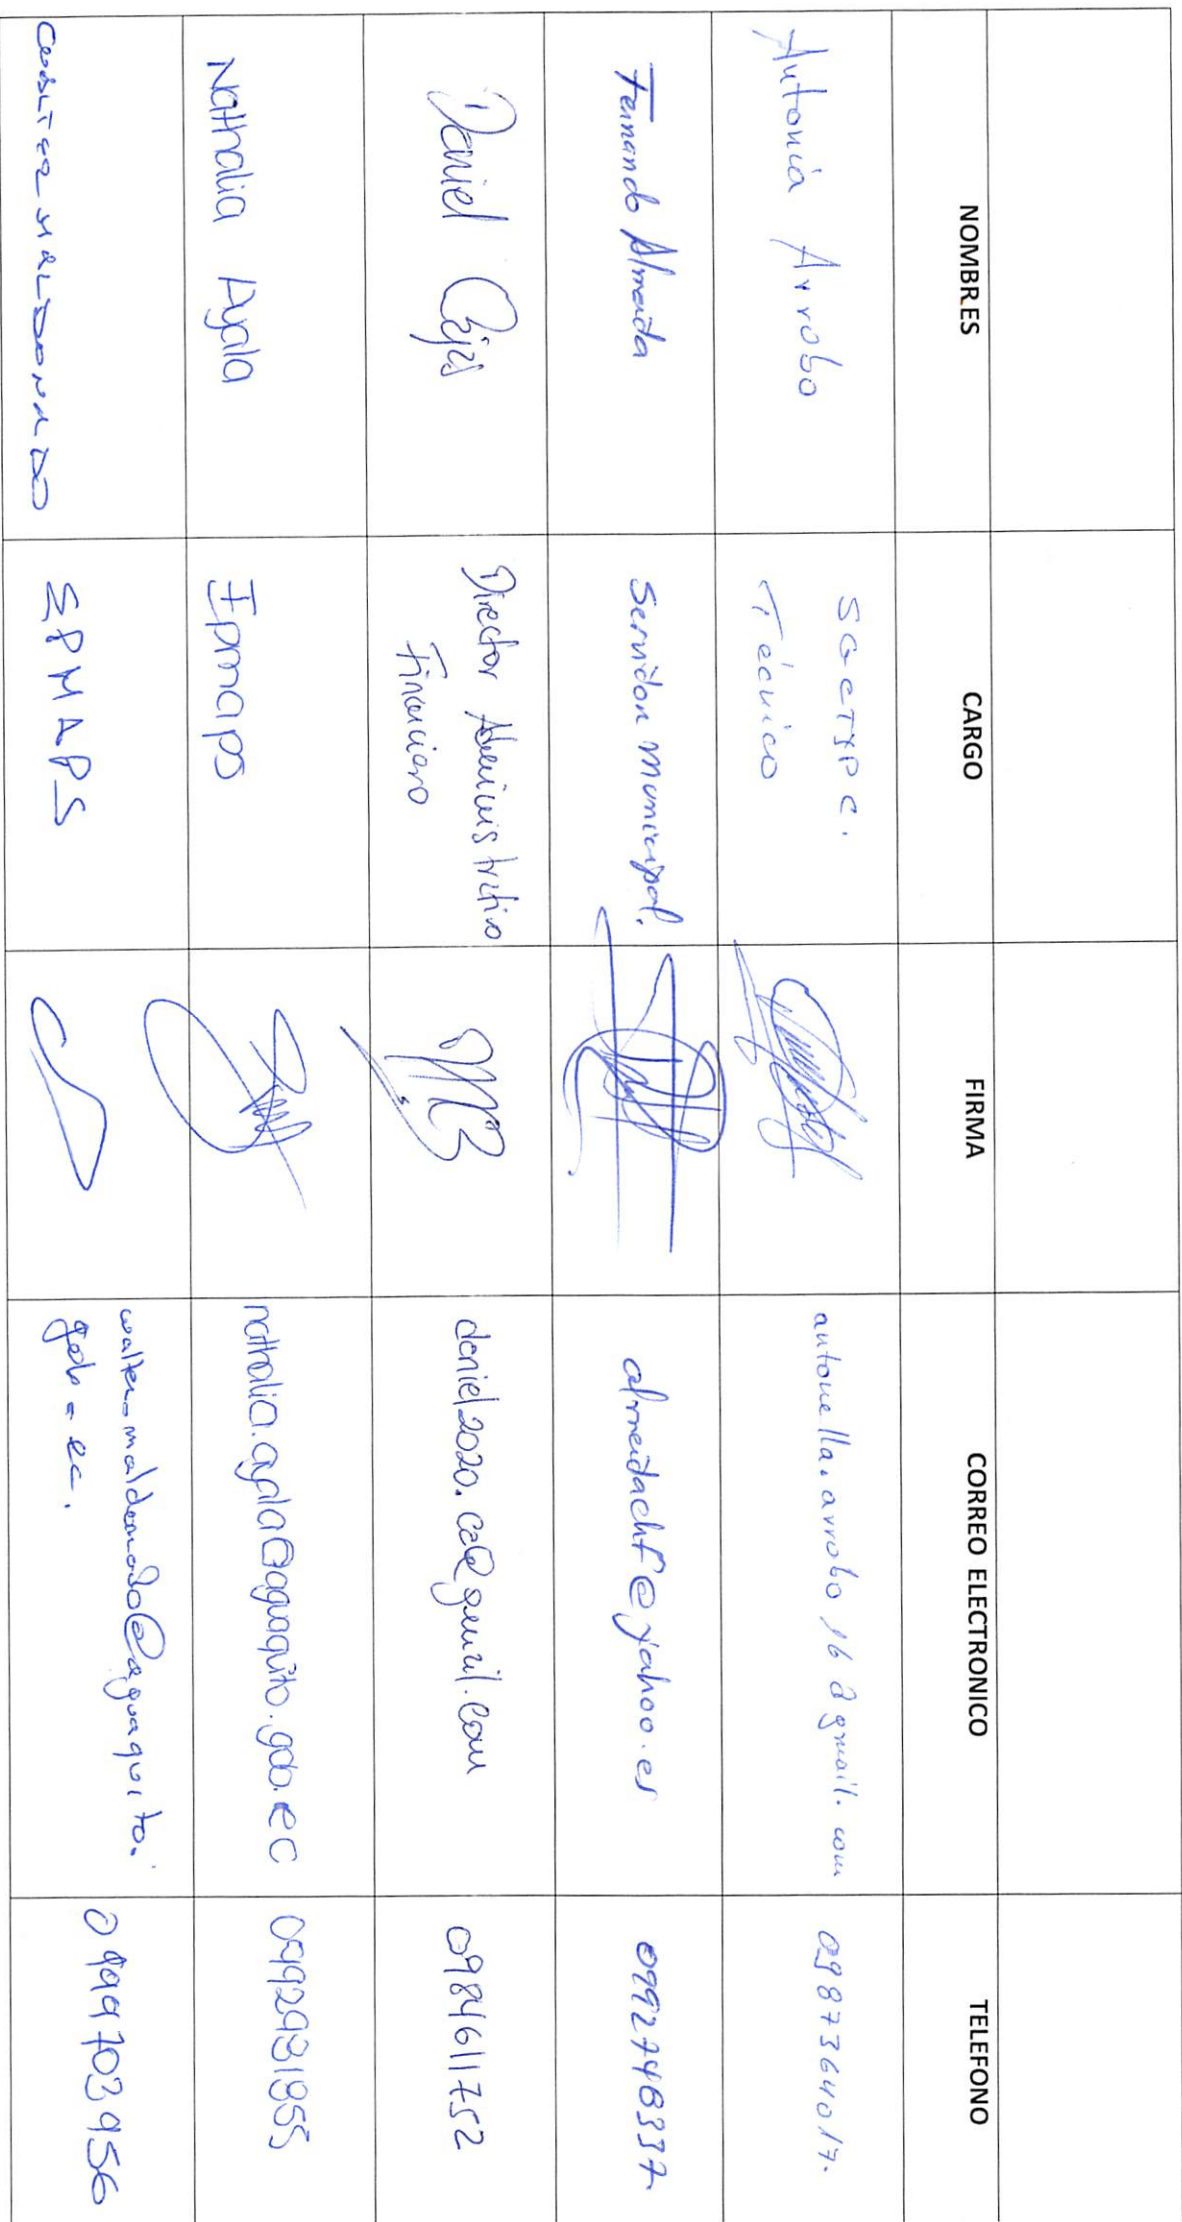 NOMBRES CARGO FIRMA CORREO ELECTRONICO TELEFONO
Antonia Arrobo SGCTYPC. Técnico antonella.arrobo16@gmail.com 0987364017.
Fernando Almeida Servidor Municipal. almeidachf@yahoo.es 0992748337
Daniel Cajas Director Administrativo Financiero daniel2020.ca@gmail.com 0984611752
Nathalia Ayala Epmaps nathalia.ayala@aguaquito.gob.ec
MALDONADO EPMAPS walter.maldonado@aguaquito.
gob.ec. 0999703956